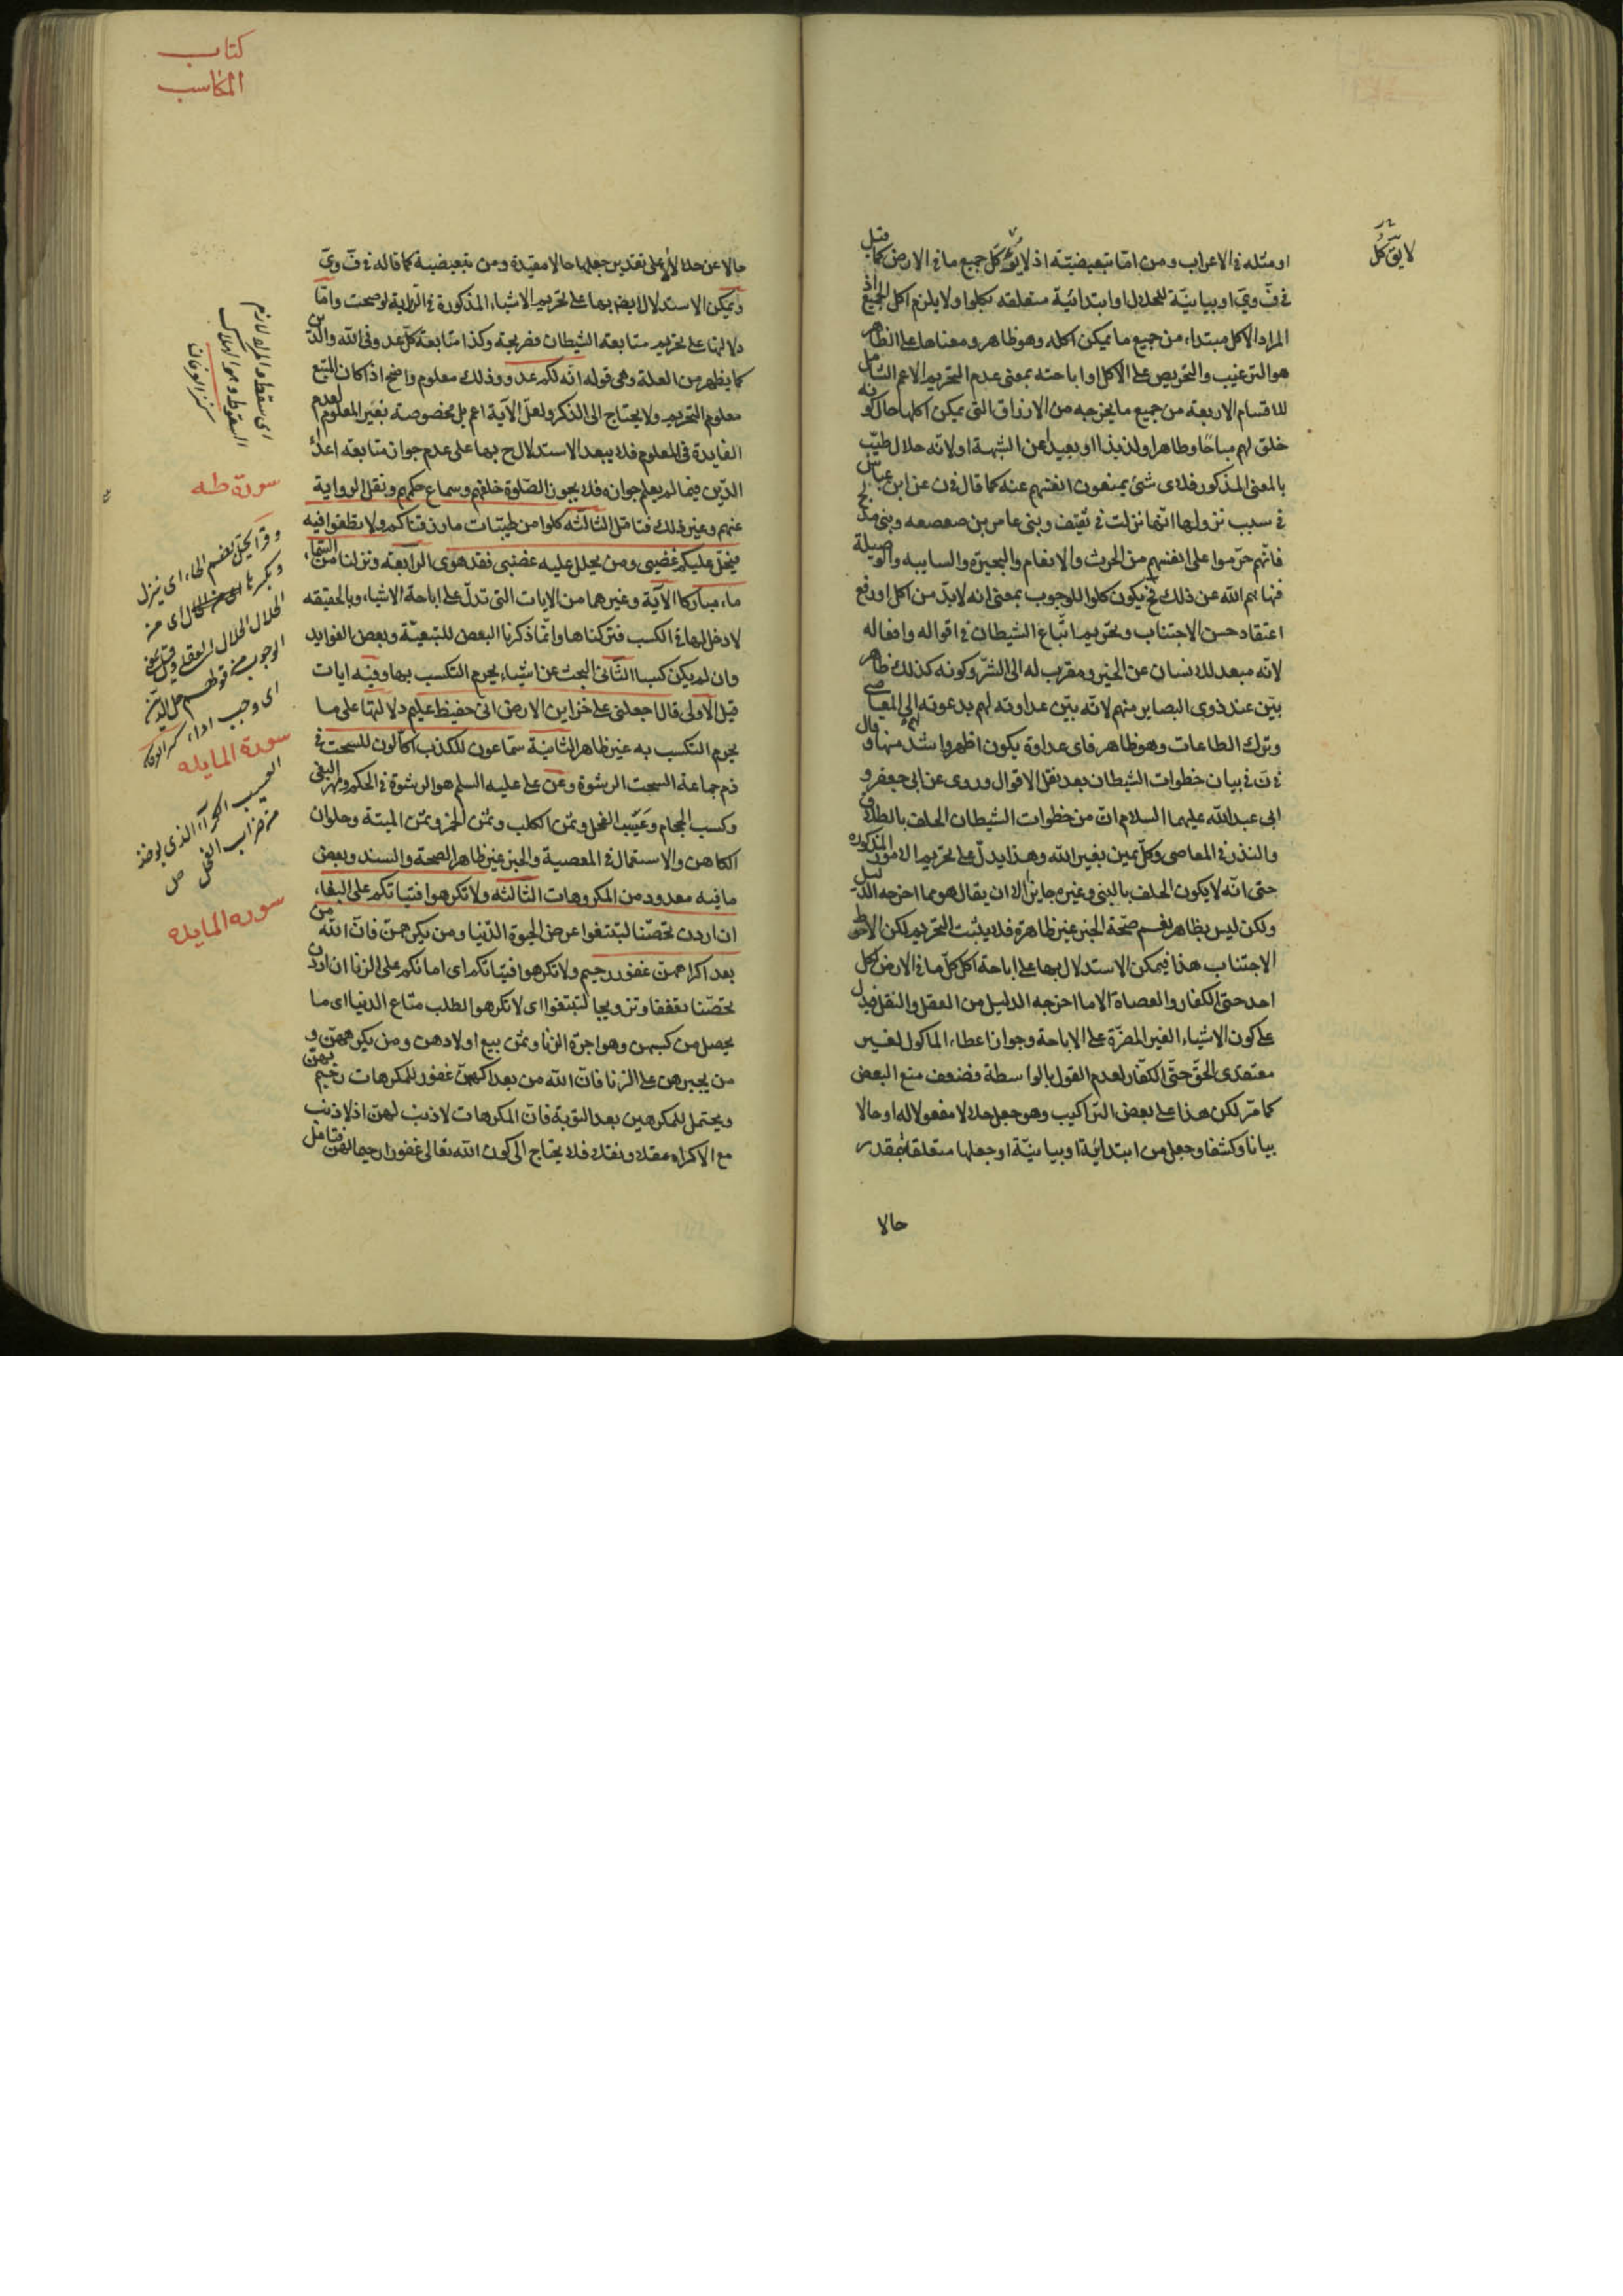 لا يؤكل
او مثله فى الاعراب ومن اما تبعيضيّة اذ لا يؤكل كل جميع ما فى الارض كما قيل
فى ف وى او بيانيّة للحلال او ابتدائية متعلقه بكلوا ولا يلزم اكل الجميع اذ
المراد الاكل مبتداء من جميع ما يمكن اكله وهو ظاهر ومعناها على الظاهر
هو الترغيب والتحريص على الاكل او اباحته بمعنى عدم التحريم الاعم الشامل
للاقسام الاربعة من جميع ما يخرجه من الارزاق التى يمكن اكلها حال كونه
خلق لهم مباحًا وطاهرا ولذيذا او بعيدا عن الشبهة او لانه حلال طيّب
بالمعنى المذكور فلاى شئ يمنعون انفسهم عنه كما قال فى ن عن ابن عباس
فى سبب نزولها انّها نزلت فى ثقيف وبنى عامر بن صعصعه وبنى مدلج
فانّهم حرّموا على انفسهم من الحرث والانعام والبحيرة والسايبه والوصيلة
فنهاهم الله عن ذلك فح يكون كلوا للوجوب بمعنى انه لابدّ من اكل او رفع
اعتقاد حسن الاجتناب وتحريم اتّباع الشيطان فى اقواله وافعاله
لانّه مبعد للانسان عن الخير ومقرب له الى الشرّ وكونه كذلك ظاهر
بيّن عند ذوى البصاير منهم لانّه بيّن عداوته لهم بدعوته لهم الى المعاصى
وترك الطاعات وهو ظاهر فاى عداوة يكون اظهر واشد منها وقال
فى ن فى بيان خطوات الشيطان بعد نقل الاقوال وروى عن ابى جعفر و
ابى عبدالله عليهما السلام انّ من خطوات الشيطان الحلف بالطلاق
والنذر فى المعاصى وكلّ يمين بغير الله وهذا يدلّ على تحريم الامور المذكوره
حتى انّه لا يكون الحلف بالنبى وغيره جايزا الا ان يقال هو مما اخرجه الدّليل
ولكن ليس بظاهر نعم صحّة الخبر غير ظاهرة فلا يثبت التحريم لكن الاحوط
الاجتناب هذا فيمكن الاستدلال بها على اباحة اكل كلّ ما فى الارض لكل
احد حتى الكفار والعصاة الا ما اخرجه الدليل من العقل والنقل فيدل
على كون الاشياء الغير المضرّة على الاباحة وجواز اعطاء الماكول لغير
معتقدى الحقّ حتّى الكفّار لعدم القول بالواسطة فضعف منع البعض
كما مرّ لكن هذا على بعض التراكيب وهو جعل حلالا مفعولا له او حالا
بيانا وكشفا وجعل من ابتدائيّة او بيانيّة او جعلها متعلقة بمقدر
حالا
كتاب
المكاسب
حالا عن حلالا لا على تقدير جعلها حالا مقيدة ومن تبعيضية كما قاله فى ف وى
ويمكن الاستدلال ايضا بها على تحريم الاشياء المذكورة فى الرواية لو صحت وامّا
دلالتها على تحريم متابعة الشيطان فصريحة وكذا متابعة كلّ عدو فى الله والدّين
كما يظهر من العلة وهى قوله انّه لكم عدو وذلك معلوم واضح اذا كان المتبع
معلوم التحريم ولا يحتاج الى الذكر ولعلّ الآية اعم بل مخصوصة بغير المعلوم لعدم
الفايدة فى المعلوم فلا يبعد الاستدلال ح بها على عدم جواز متابعة اعداء
الدّين فيما لم يعلم جوازه فلا يجوز الصّلوة خلفهم وسماع حكمهم ونقل الرواية
عنهم وغير ذلك فتامّل الثالثة كلوا من طيّبات ما رزقناكم ولا تطغوا فيه
فيحلّ عليكم غضبى ومن يحلل عليه غضبى فقد هوى الرابعة ونزلنا من السّماء
ماء مباركا الآية وغيرهما من الايات التى تدلّ على اباحة الاشياء وبالحقيقه
لا دخل لها فى الكسب فتركناها وانّما ذكرنا البعض للتبعيّة وبعض الفوايد
وان لم يكن كسبا الثّانى البحث عن اشياء يحرم التكسب بها وفيه ايات
قيل الاولى قال اجعلنى على خزاين الارض انى حفيظ عليم دلالتها على ما
يحرم التكسب به غير ظاهر الثانية سمّاعون للكذب اكّالون للسحت فى
ذم جماعة السحت الرشوة وعن على عليه السلم هو الرشوة فى الحكم ومهر البغى
وكسب الحجام وعسيب الفحل وثمن الكلب وثمن الخمر وثمن الميتة وحلوان
الكاهن والاستعمال فى المعصية والخبر غير ظاهر الصحة والسند وبعض
ما فيه معدود من المكروهات الثالثة ولا تكرهوا فتياتكم على البغاء
ان اردن تحصّنا لتبتغوا عرض الحيوة الدّنيا ومن يكرههنّ فانّ الله من
بعد اكراههنّ غفور رحيم ولا تكرهوا فتياتكم اى امائكم على الزنا ان اردن
تحصّنا تعففا وتزويجا لتبتغوا اى لا تكرهوا لطلب متاع الدنيا اى ما
يحصل من كسبهن وهو اجرة الزنا وثمن بيع اولادهن ومن يكرههنّ و
من يجبرهن على الزنا فانّ الله من بعد اكراههنّ غفور للمكرهات رحيم بهنّ
ويحتمل للمكرهين بعد التوبة فانّ المكرهات لا ذنب لهنّ اذ لا ذنب
مع الاكراه عقلا ونقلا فلا يحتاج الى كون الله تعالى غفورا رحيما لهنّ فتامل
سورة طه
وقرا يحلّ بضم الحاء اى ينزل
اى وجب اداء
سورة المايده
العسيب الكراء الذى يوخذ
من ضراب الفحل ص
سوره المايده